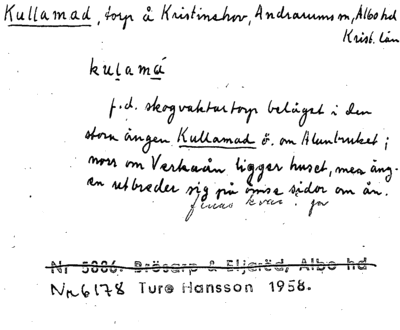 Kullamad, torp å Kristinehov, Andrarums sn, Albo hd
Krist. län
kulamá
f.d. skogvaktartorp beläget i den
stora ängen Kullamad ö. om Alunbruket;
norr om Verkaån ligger huset, men äng-
en utbreder sig på ömse sidor om ån.
finns kvar: ja
Nr 5886. Brösarp & Eljaröd, Albo hd
Nr 6178 Ture Hansson 1958.